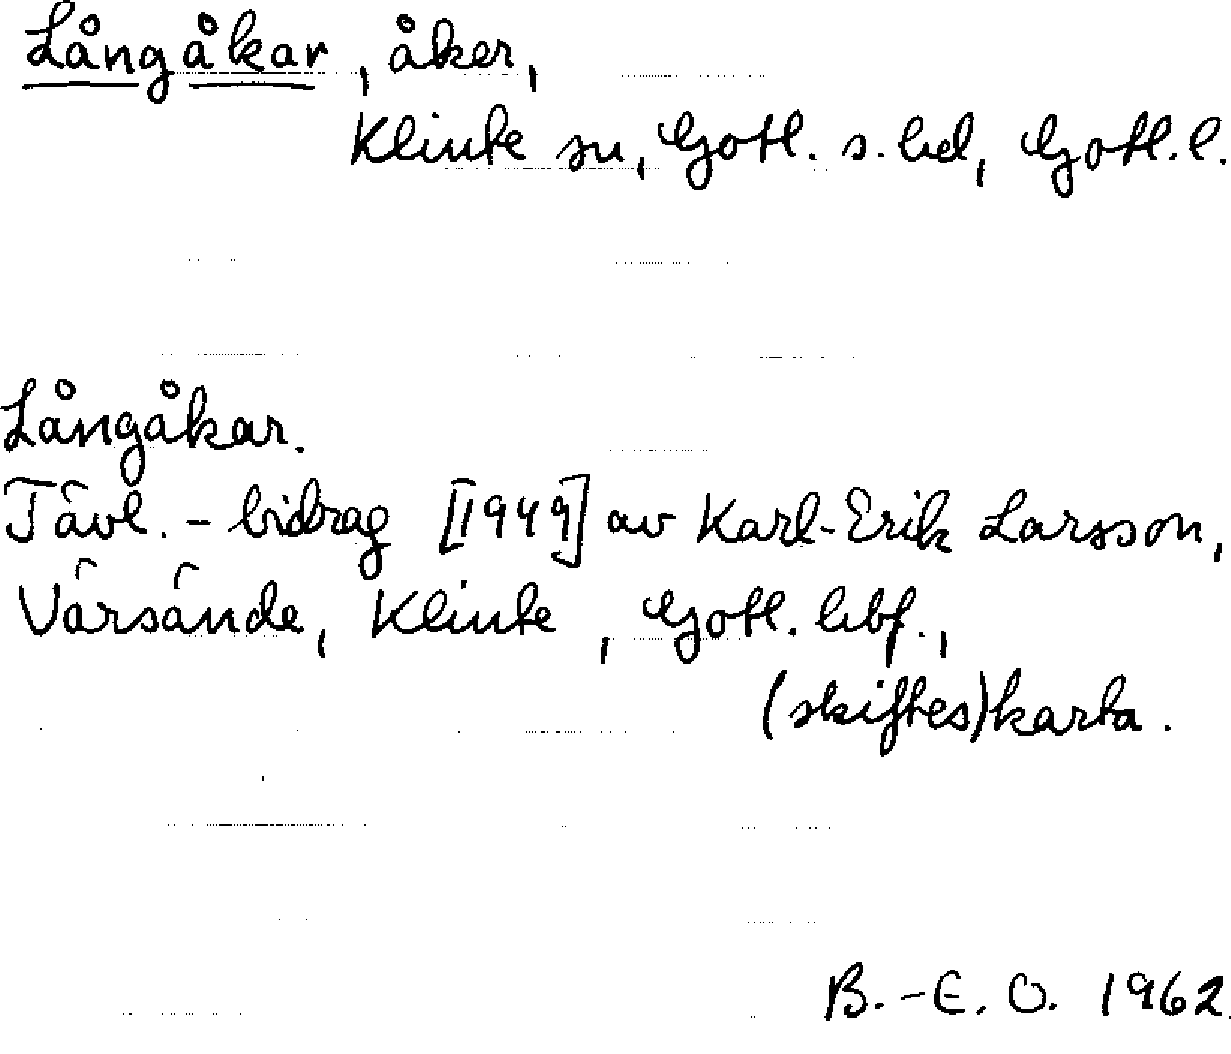 Långåkar, åker,
Klinte sn, Gotl. s. hd, Gotl. l.
Långåkar.
Tävl.-bidrag [1949] av Karl-Erik Larsson,
Värsände, Klinte, Gotl. hbf.,
(skiftes)karta.
B.-E. O. 1962.